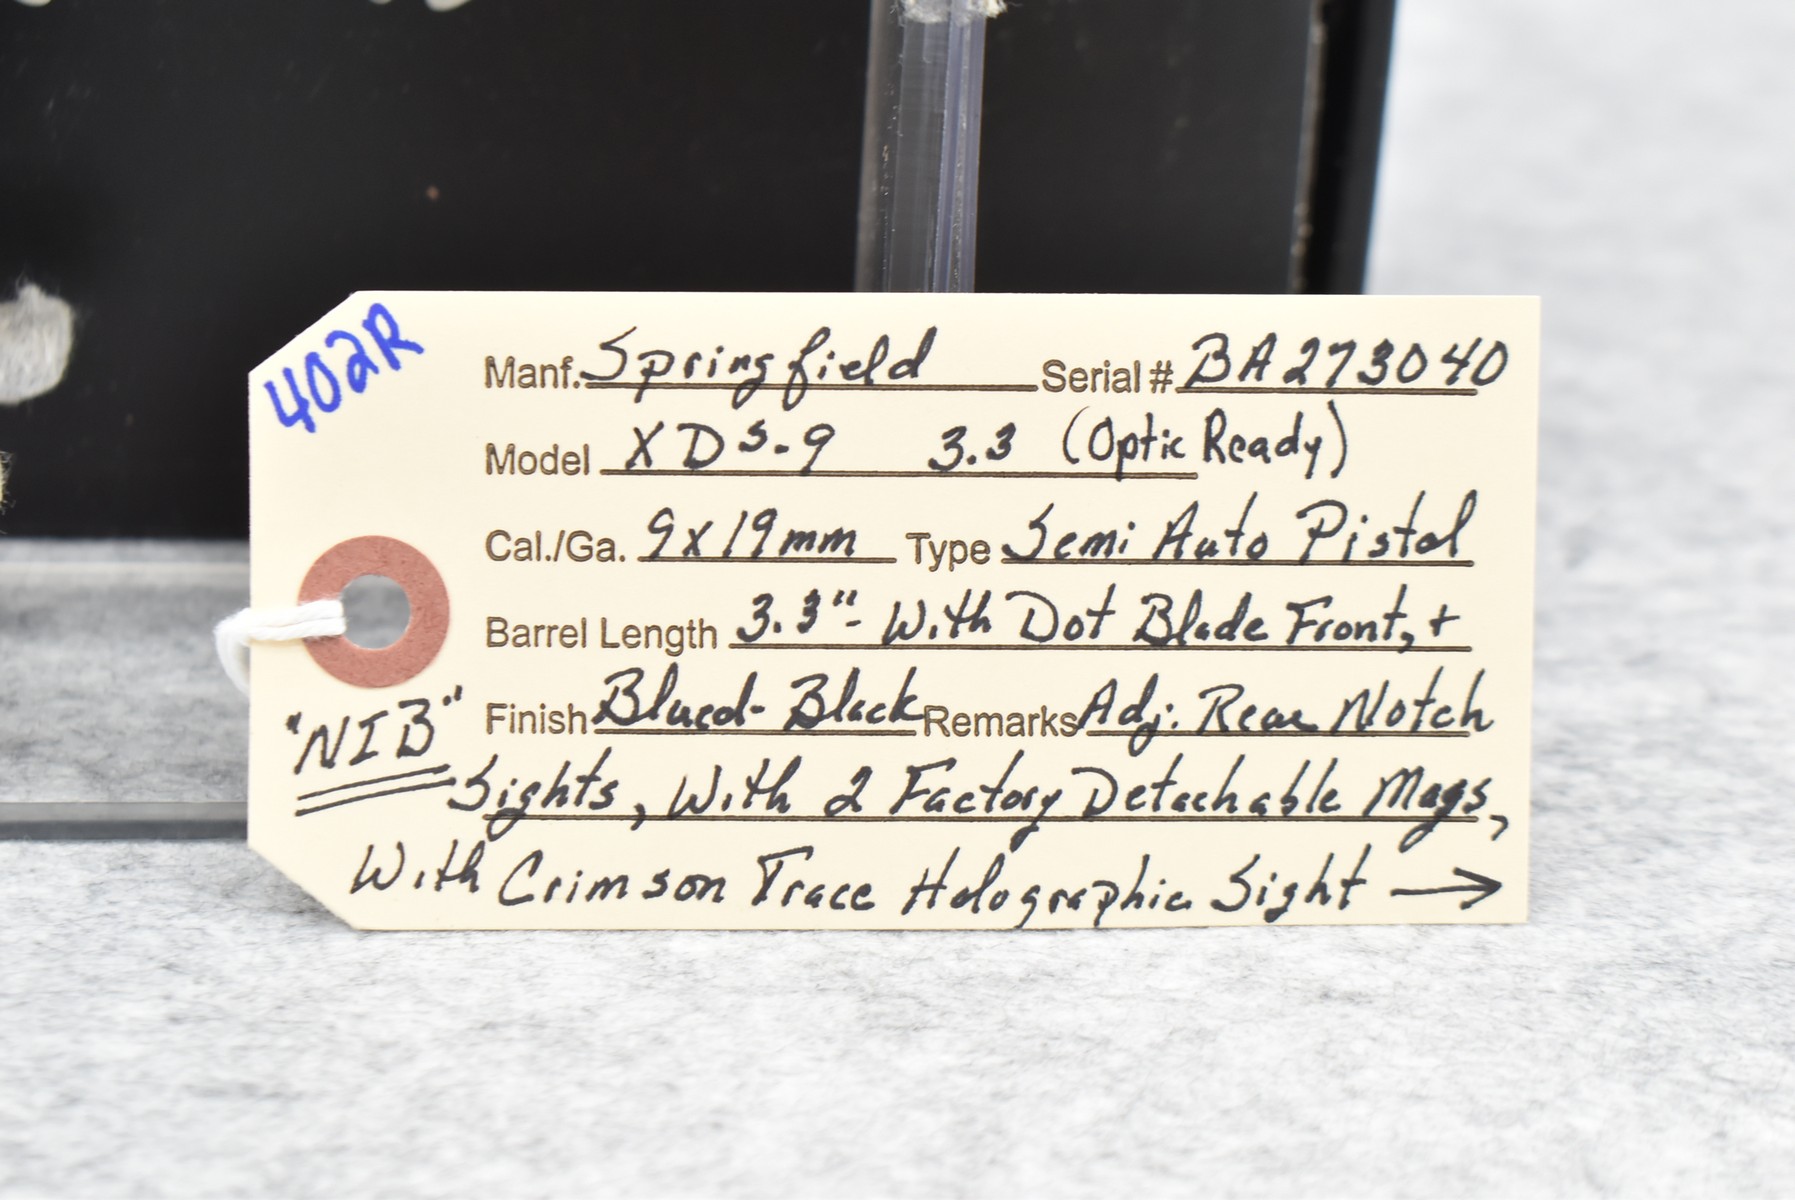 402R
Manf. Springfield Serial # BA273040
Model XDS-9 3.3 (Optic Ready)
Cal./Ga. 9x19mm Type Semi Auto Pistol
Barrel Length 3.3"- With Dot Blade Front, +
Finish Blued-Black Remarks Adj. Rear Notch
"NIB"
Sights, With 2 Factory Detachable Mags,
With Crimson Trace Holographic Sight →